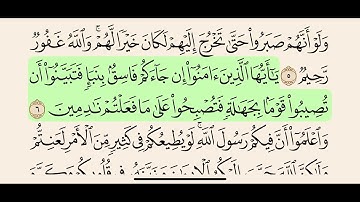 وَلَوْ أَنَّهُمْ صَبَرُوا۟ حَتَّىٰ تَخْرُجَ إِلَيْهِمْ لَكَانَ خَيْرًا لَّهُمْ ۚ وَٱللَّهُ غَفُورٌ
رَّحِيمٌ ٥ يَـٰٓأَيُّهَا ٱلَّذِينَ ءَامَنُوٓا۟ إِن جَآءَكُمْ فَاسِقٌۢ بِنَبَإٍ فَتَبَيَّنُوٓا۟ أَن
تُصِيبُوا۟ قَوْمًۢا بِجَهَـٰلَةٍ فَتُصْبِحُوا۟ عَلَىٰ مَا فَعَلْتُمْ نَـٰدِمِينَ ٦
وَٱعْلَمُوٓا۟ أَنَّ فِيكُمْ رَسُولَ ٱللَّهِ ۚ لَوْ يُطِيعُكُمْ فِى كَثِيرٍ مِّنَ ٱلْأَمْرِ لَعَنِتُّمْ